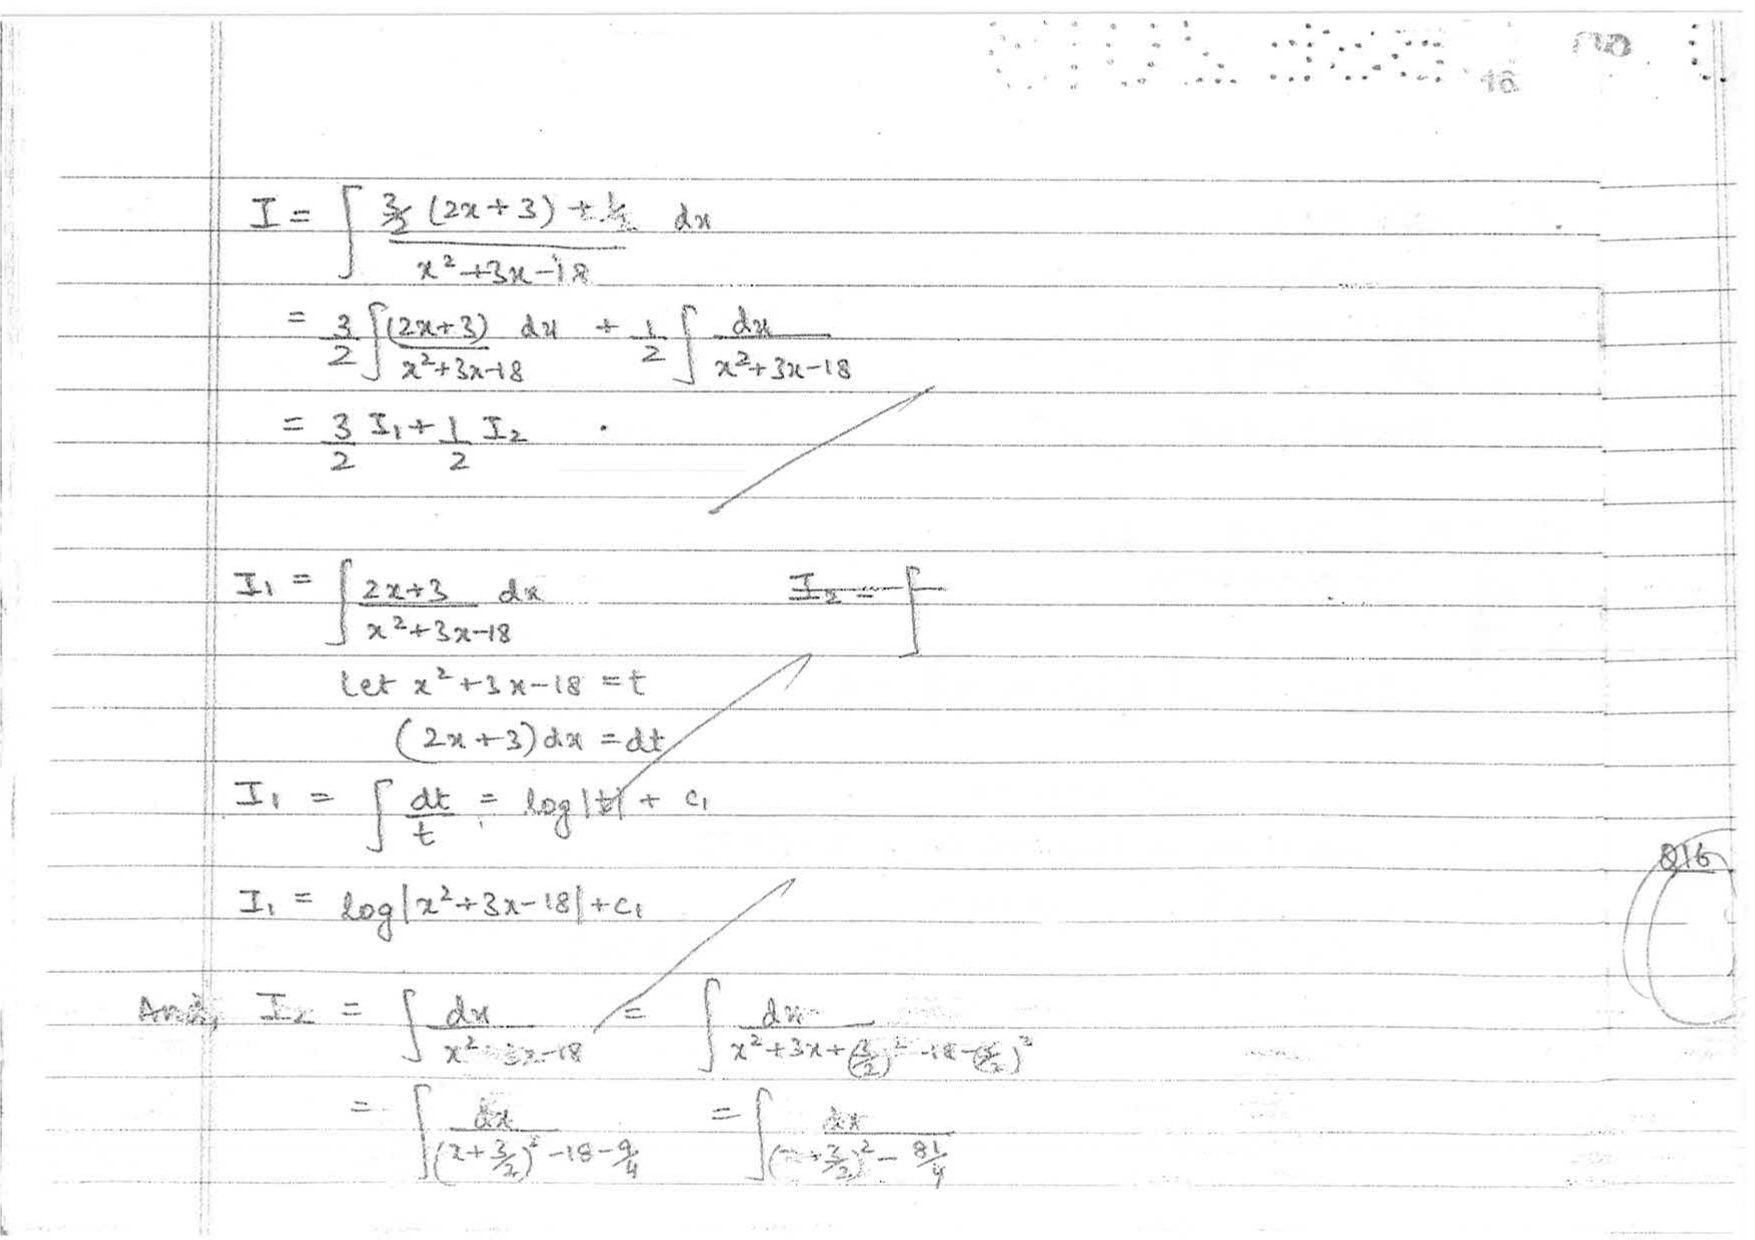 16
I = ∫ (3/2 (2x+3) + 1/2) / (x²+3x-18) dx
= 3/2 ∫ (2x+3)/(x²+3x-18) dx + 1/2 ∫ dx/(x²+3x-18)
= 3/2 I₁ + 1/2 I₂
I₁ = ∫ (2x+3)/(x²+3x-18) dx I₂ = ∫
Let x²+3x-18 = t
(2x+3)dx = dt
I₁ = ∫ dt/t = log|t| + c₁
Q16
I₁ = log|x²+3x-18| + c₁
And, I₂ = ∫ dx/(x²+3x-18) = ∫ dx/(x²+3x+(3/2)²-18-(3/2)²)
= ∫ dx/((x+3/2)²-18-9/4) = ∫ dx/((x+3/2)²-81/4)